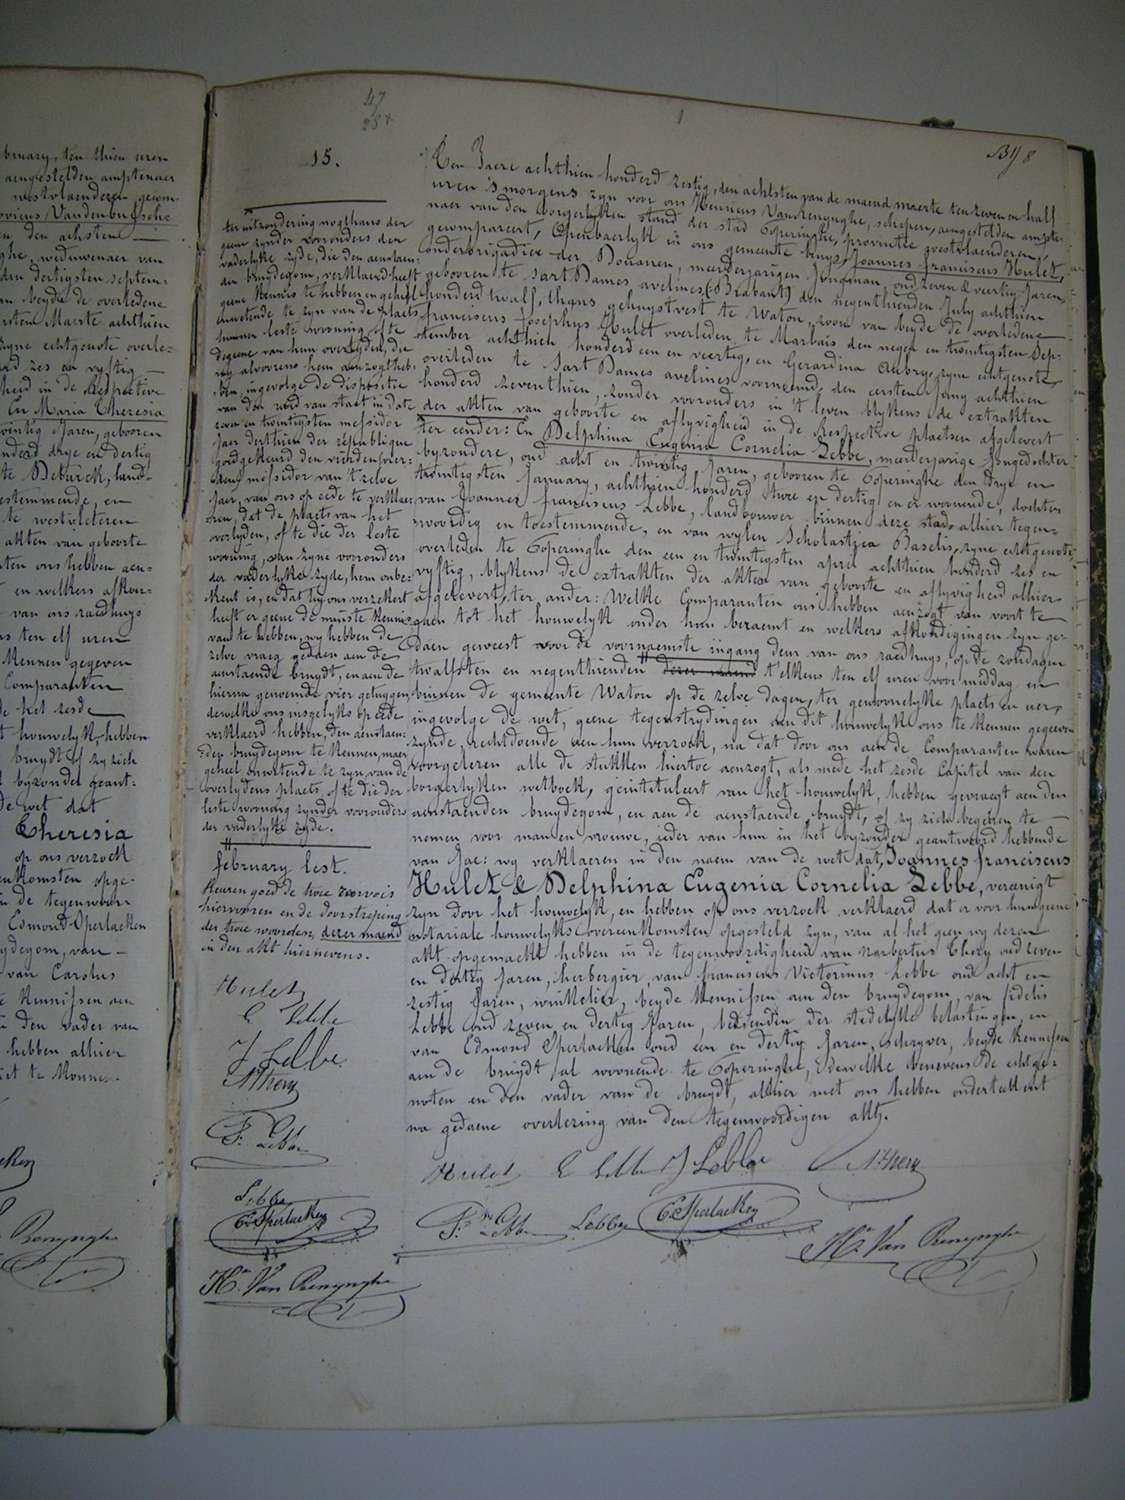 bruary, ten thien uren
aengestelden amptenaer
westvlaenderen, gecom-
Vandenbussche
den achsten
ghe, weduwenaer van
den dertigsten septem-
van beyde de overledene
Maerte achthien
zyne echtgenote overle-
zes en vyftig
heid in de respective
En Maria Theresia
twintig Jaren, geboren
honderd drye en dertig
te Deburck, land-
toestemmende, en
te westvleteren
akten van geboorte
ten ons hebben aen-
en welkers afkon-
van ons raedhuys
ten elf uren
kennen gegeven
Comparanten
het zesde
houwelyk, hebben
bruydt of zy zich
byzonder geant-
de wet dat
Theresia
op ons verzoek
eenkomsten opge-
in de tegenwoor-
Edmond Sperlaeken
bruydegom, van
van Carolus
kennissen aen
den vader van
hebben alhier
niet te konnen.
Renynghe
47
287
15.
ter uitzondering nogthans der
gene zynder voorouders der
vaderlyke zyde, die den aenstaen-
den bruydegom, verklaerd heeft
geene kennis te hebben en geheel
onwetende te zyn van de plaets
hunner leste wooning of te
degene van hun overlyden, die
wy alvoorens hem aenzogt heb-
ben, ingevolge de dispositie
van den raed van staet in date
zeven en twintigsten messidor
Jaer derthien der republique
goedgekeurd den vierden ver-
dens messidor van 't zelve
Jaer, van ons op eede te verklae-
ren, dat de plaets van het
overlyden, of te die der leste
wooning, van zyne voorouders
der vaderlyke zyde, hem onbe-
kent is, en dat hy ons verzekert
heeft er geene de minste kennis
van te hebben, wy hebben de
zelve vraeg gedaen aen de
aenstaende bruydt, en aen de
hierna genoemde vier getuygen
dewelke ons insgelyks op eede
verklaerd hebben, den aenstaen-
den bruydegom te kennen, maer
geheel onwetende te zyn, van de
overlydens plaets, of te die der
leste wooning zynder voorouders
der vaderlyke zyde.
february lest.
Keuren goed de twee renvois
hiervooren en de doorstreping
der twee woorden, dezer maend
in den akt hiernevens.
Hulet
E Lebbe
J Lebbe
N Thery
F. Lebbe
Lebbe
E. Sperlaeken
Hri. Van Renynghe
Bly 8
Een Jaere achthien honderd zestig, den achsten van de maend maerte ten zeven en half
uren 's morgens zyn voor ons Henricus Vanrenynghe, schepen, aengestelden ampte-
naer van den borgerlyken stand der stad Poperinghe, provintie westvlaenderen,
gecompareert, Openbaerlyk in ons gemeente huys, Joannes franciscus Hulet,
onderbrigadier der Douanen, meerderjarigen Jongman, oud zeven & veertig Jaren,
geboren te Sart Dames avelines (Brabant) den negenthienden July achthien
honderd twalf, thans gehuysvest te Watou, zoon van beyde de overledene
franciscus Josephus Hulet overleden te Marbais den negen en twintigsten Sep-
tember achthien honderd een en veertig, en Gerardina Aubry, zyne echtgenote
overleden te Sart Dames avelines voornoemd, den eersten Juny achthien
honderd zeventhien, zonder voorouders in 't leven blykens de extrakten
der akten van geboorte en aflyvigheid in de respective plaetsen afgelevert
ter eender: En Delphina Eugenia Cornelia Lebbe, meerderjarige Jongedochter
byzondere, oud acht en twintig Jaren, geboren te Poperinghe den drye en
twintigsten January, achthien honderd twee en dertig en er woonende, dochter
van Joannes franciscus Lebbe, landbouwer, binnen deze stad, alhier tegen-
woordig en toestemmende, en van wylen Scholastica Baselis, zyne echtgenote
overleden te Poperinghe den een en twintigsten april achthien honderd zes en
vyftig, blykens de extrakten der akten van geboorte en aflyvigheid alhier
afgelevert, ter ander: Welke Comparanten ons hebben aenzogt van voort te
gaen tot het houwelyk onder hun beraemt en welkers afkondigingen zyn ge-
daen geweest voor de voornaemste ingang deur van ons raedhuys, op de zondagen
twalfsten en negenthienden dezer maend t'elkens ten elf uren voor middag en
binnen de gemeente Watou op de zelve dagen, ter gewoonelyke plaets en uer,
ingevolge de wet, geene tegenstrydingen aen dit houwelyk ons te kennen gegeven
zynde, rechtdoende aen hun verzoek, na dat door ons aen de Comparanten waren
voorgelezen alle de stukken hiertoe aenzogt, als mede het zesde Capitel van den
borgerlyken wetboek, geïntituleert van het houwelyk, hebben gevraegt aen den
aenstaenden bruydegom, en aen de aenstaende bruydt, of zy zich begeren te
nemen voor man en vrouwe, ieder van hun in het byzonder geantwoord hebbende
van Jae: wy verklaeren in den naem van de wet dat, Joannes franciscus
Hulet & Delphina Eugenia Cornelia Lebbe, vereenigt
zyn door het houwelyk, en hebben op ons verzoek verklaerd dat er voor hun geene
notariale houwelyks overeenkomsten opgesteld zyn, van al het gen wy dezen
akt opgemaekt hebben in de tegenwoordigheid van Norbertus Thery oud zeven
en dertig Jaren, herbergier, van franciscus Victorinus Lebbe oud acht en
zestig Jaren, winkelier, beyde kennissen aen den bruydegom, van fidelis
Lebbe oud zeven en dertig Jaren, bediendin der stedelyke belastingen, en
van Edmond Sperlaeken oud een en dertig Jaren, schryver, beyde kennissen
aen de bruydt al woonende te Poperinghe, dewelke benevens de echtge-
noten en den vader van de bruydt, alhier met ons hebben ondertekent
na gedaene overlezing van den tegenwoordigen akt.
Hulet E Lebbe J Lebbe N Thery
F. Lebbe Lebbe E. Sperlaeken
Hri. Van Renynghe